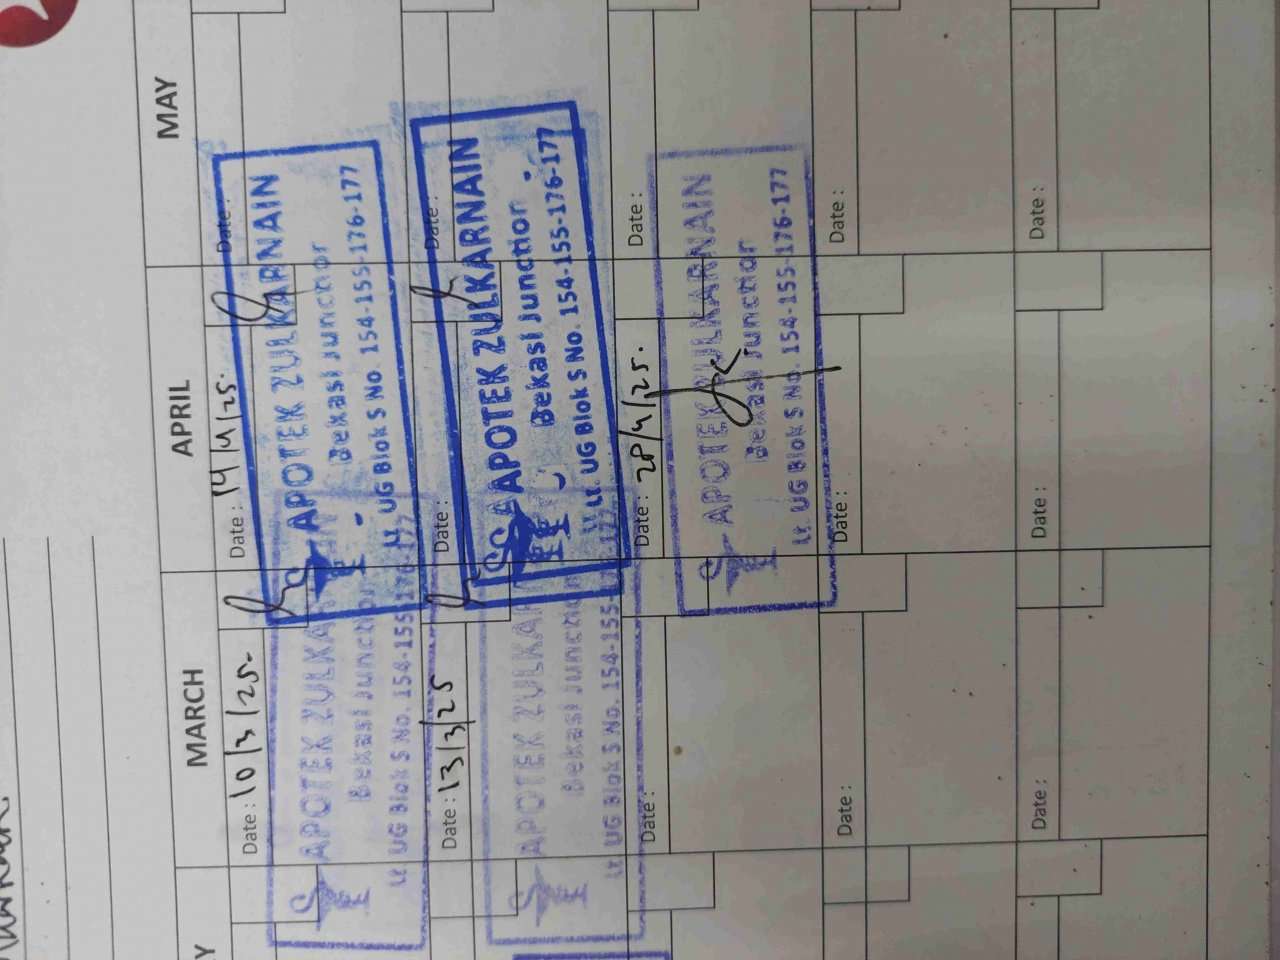 MARCH
APRIL
MAY
Date : 10/3/25.
Date : 14/4/25.
Date :
APOTEK ZULKA
Bekasi Junction
Lt. UG Blok S No. 154-155-176-177
APOTEK ZULKARNAIN
Bekasi Junction
Lt. UG Blok S No. 154-155-176-177
Date : 13/3/25
Date :
Date :
APOTEK ZULKAR
Bekasi Junction
Lt. UG Blok S No. 154-155-
APOTEK ZULKARNAIN
Bekasi Junction
Lt. UG Blok S No. 154-155-176-177
Date :
Date : 28/4/25.
Date :
APOTEK ZULKARNAIN
Bekasi Junction
Lt. UG Blok S No. 154-155-176-177
Date :
Date :
Date :
Date :
Date :
Date :